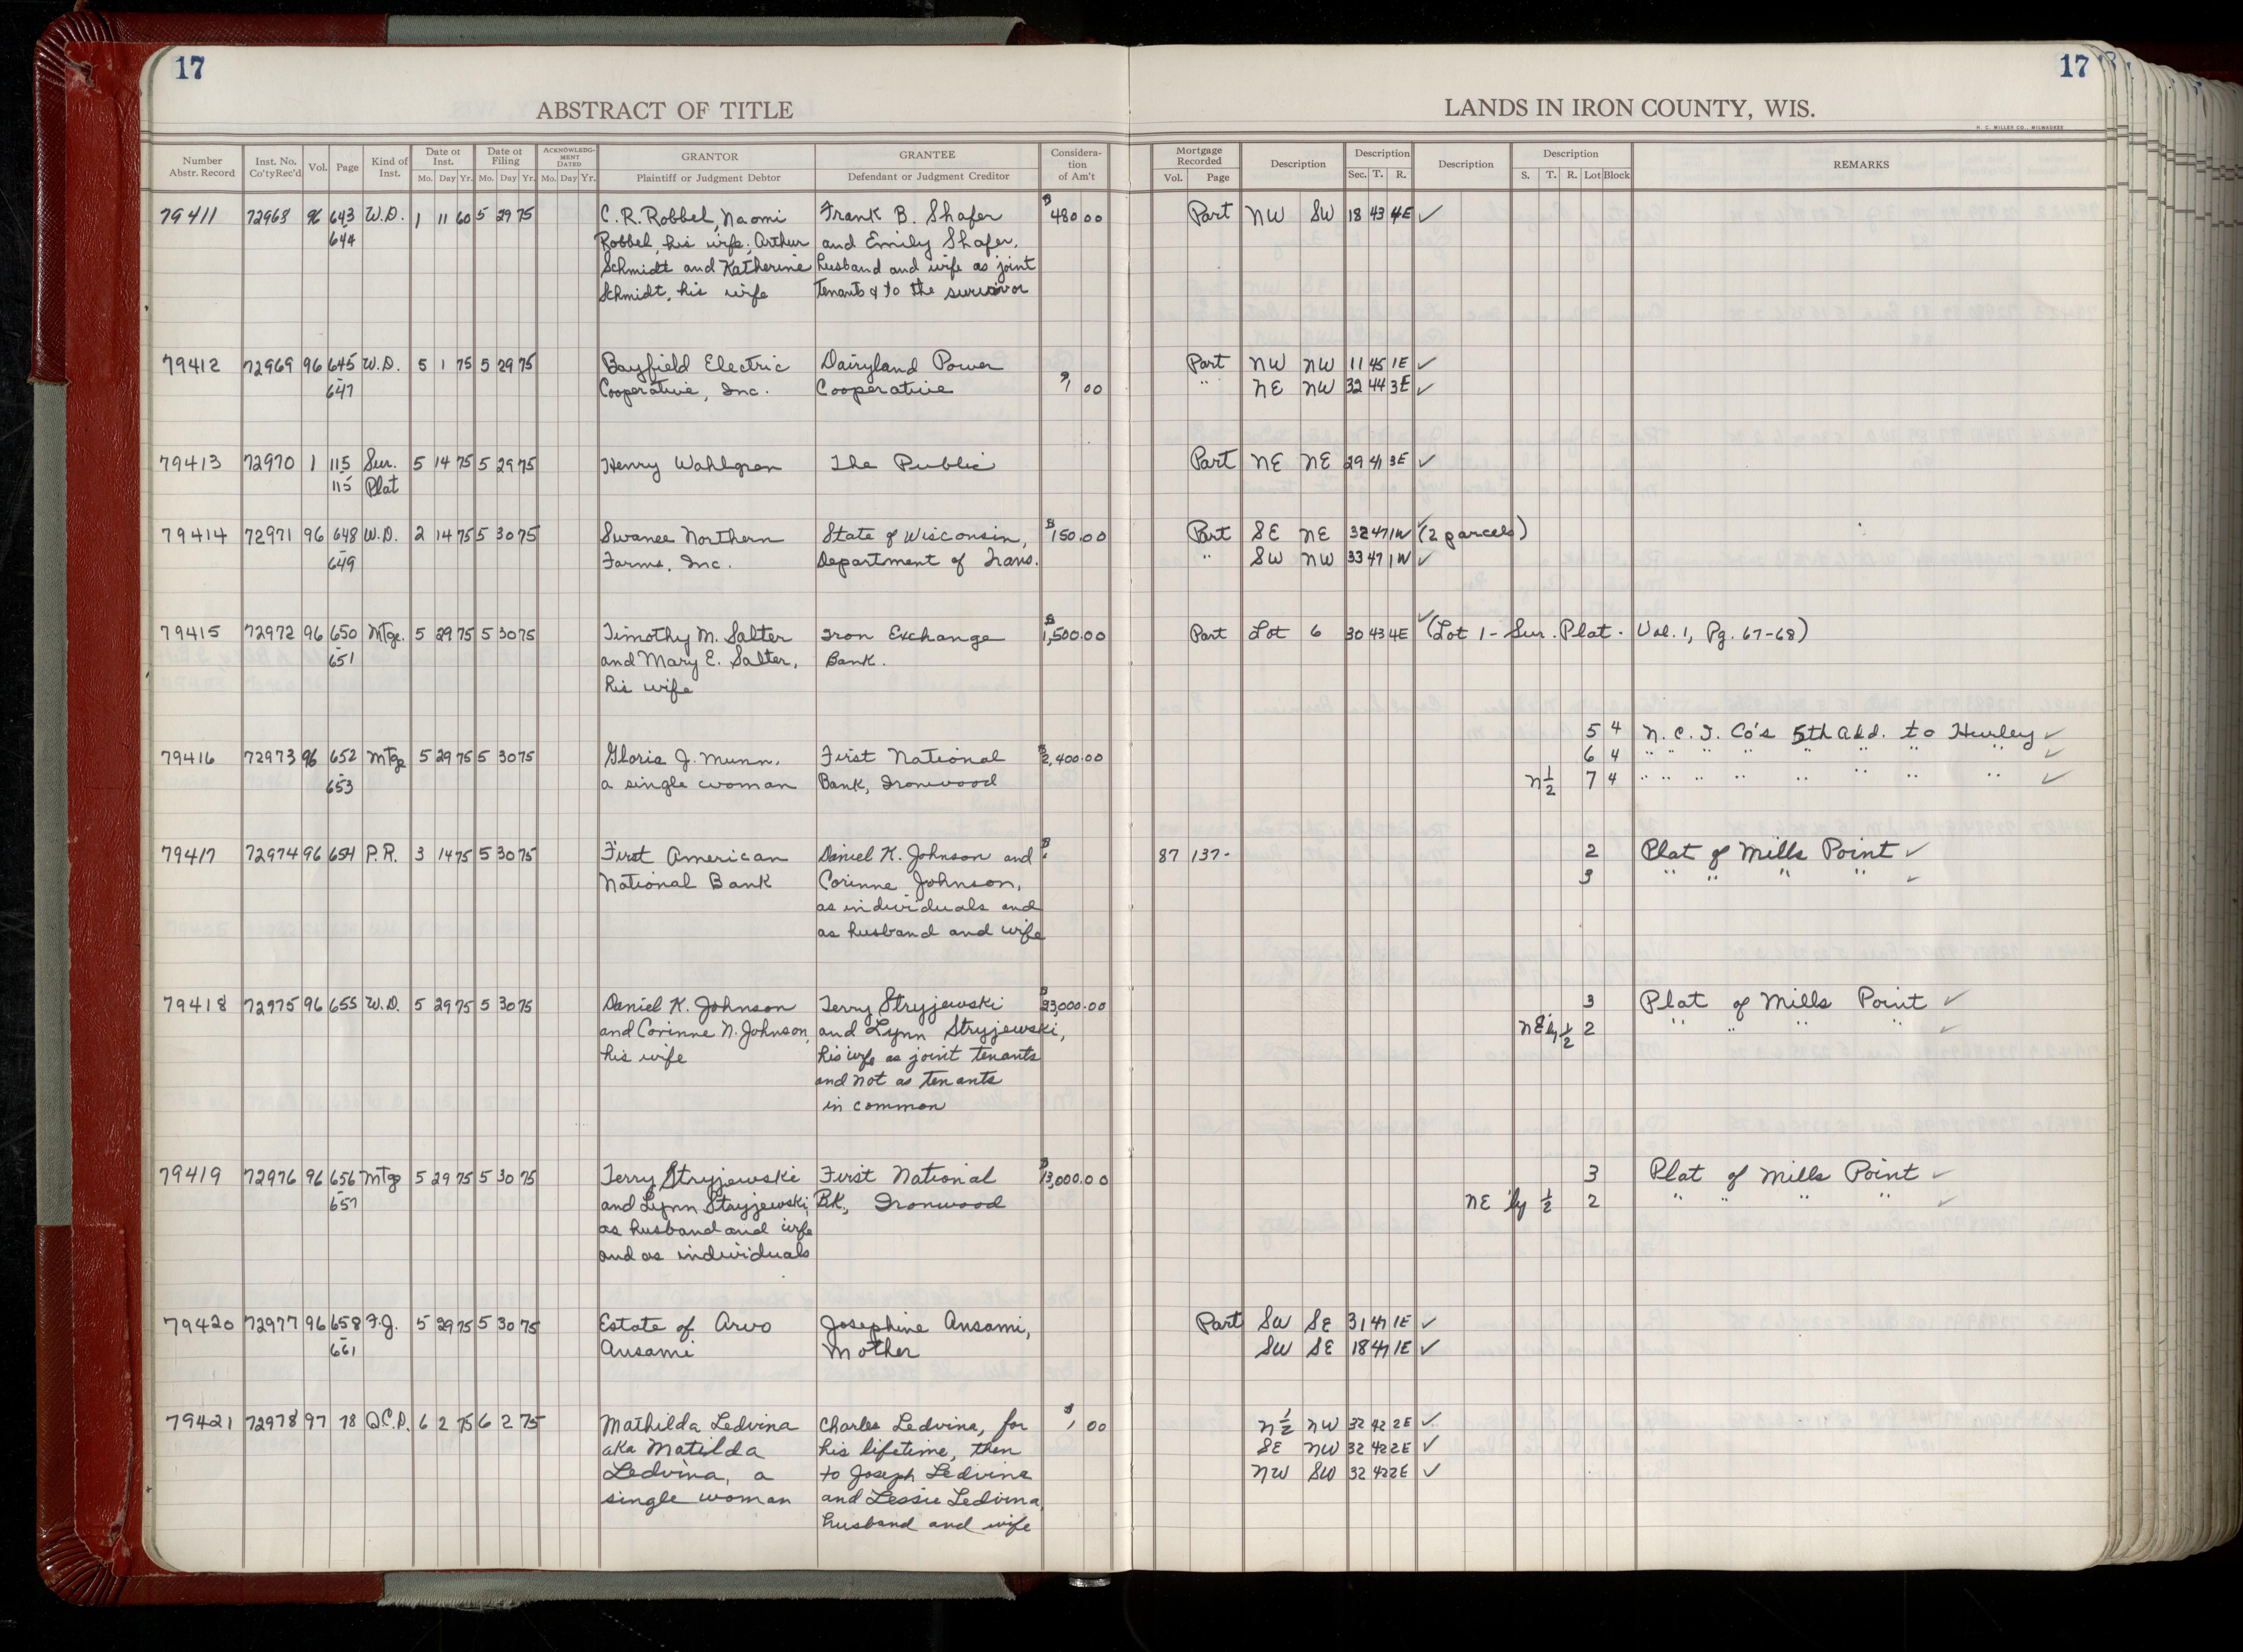 17 17
ABSTRACT OF TITLE LANDS IN IRON COUNTY, WIS.
H. C. MILLER CO., MILWAUKEE
Number Abstr. Record Inst. No. Co'ty Rec'd Vol. Page Kind of Inst. Date of Inst. Mo. Day Yr. Date of Filing Mo. Day Yr. ACKNOWLEDGMENT DATED Mo. Day Yr. GRANTOR Plaintiff or Judgment Debtor GRANTEE Defendant or Judgment Creditor Consideration of Am't Mortgage Recorded Vol. Page Description Description Sec. T. R. Description Description S. T. R. Lot Block REMARKS
79411 72968 96 643 W.D. 1 11 60 5 29 75 C.R. Robbel, Naomi Frank B. Shafer $480.00 Part NW SW 18 43 4E ✓
- 644 Robbel, his wife; Arthur and Emily Shafer,
Schmidt and Katherine husband and wife as joint
Schmidt, his wife tenants & to the survivor
79412 72969 96 645 W.D. 5 1 75 5 29 75 Bayfield Electric Dairyland Power Part NW NW 11 45 1E ✓
- 647 Cooperative, Inc. Cooperative $1 00 " NE NW 32 44 3E ✓
79413 72970 1 115 Sur. 5 14 75 5 29 75 Henry Wahlgren The Public Part NE NE 29 41 3E ✓
115 Plat
79414 72971 96 648 W.D. 2 14 75 5 30 75 Swanee Northern State of Wisconsin, $150.00 Part SE NE 32 47 1W ✓ (2 parcels)
- 649 Farms, Inc. Department of Trans. " SW NW 33 47 1W ✓
79415 72972 96 650 Mtge. 5 29 75 5 30 75 Timothy M. Salter Iron Exchange $1,500.00 Part Lot 6 30 43 4E ✓ (Lot 1 - Sur. Plat. Vol. 1, Pg. 67-68)
- 651 and Mary E. Salter, Bank.
his wife
5 4 N.C.I. Co's 5th Add. to Hurley ✓
79416 72973 96 652 Mtge 5 29 75 5 30 75 Gloria J. Munn, First National $2,400.00 6 4 " " " " " " " " ✓
- 653 a single woman Bank, Ironwood N½ 7 4 " " " " " " " " ✓
79417 72974 96 654 P.R. 3 14 75 5 30 75 First American Daniel K. Johnson and $ 87 137- 2 Plat of Mills Point ✓
National Bank Corinne Johnson, 3 " " " " ✓
as individuals and
as husband and wife
79418 72975 96 655 W.D. 5 29 75 5 30 75 Daniel K. Johnson Terry Stryjewski $23,000.00 3 Plat of Mills Point ✓
and Corinne N. Johnson, and Lynn Stryjewski, NE'ly ½ 2 " " " " ✓
his wife his wife as joint tenants
and not as tenants
in common
79419 72976 96 656 Mtge 5 29 75 5 30 75 Terry Stryjewski First National $13,000.00 3 Plat of Mills Point ✓
- 657 and Lynn Stryjewski, BK., Ironwood NE'ly ½ 2 " " " " ✓
as husband and wife
and as individuals
79420 72977 96 658 F.J. 5 29 75 5 30 75 Estate of Arvo Josephine Ansami, Part SW SE 31 47 1E ✓
- 661 Ansami Mother SW SE 18 47 1E ✓
79421 72978 97 78 Q.C.D. 6 2 75 6 2 75 Mathilda Ledvina Charles Ledvina, for $1 00 N½ NW 32 42 2E ✓
aka Matilda his lifetime, then SE NW 32 42 2E ✓
Ledvina, a to Joseph Ledvina NW SW 32 42 2E ✓
single woman and Lessie Ledvina,
husband and wife